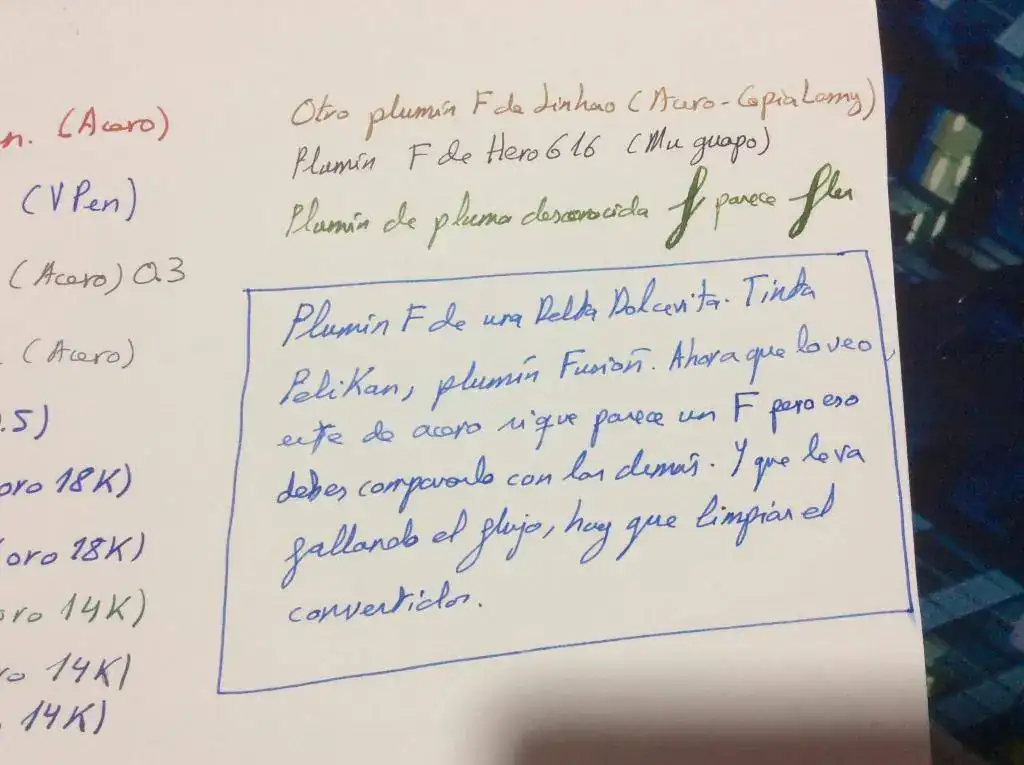 n. (Acero)
(VPen)
(Acero) 0.3
. (Acero)
.5)
oro 18K)
(oro 18K)
oro 14K)
ro 14K)
. 14K)
Otro plumín F de Jinhao (Acero-Copia Lamy)
Plumín F de Hero 616 (Mu guapo)
Plumín de pluma desconocida f parece flex
Plumín F de una Delta Dolcevita. Tinta
Pelikan, plumín Fusion. Ahora que lo veo,
este de acero si que parece un F pero eso
debes compararlo con los demás. Y que le va
fallando el flujo, hay que limpiar el
convertidor.